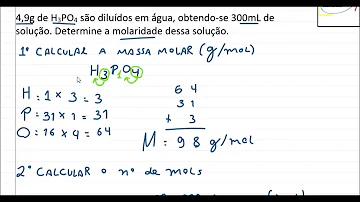 4,9g de H₃PO₄ são diluídos em água, obtendo-se 300mL de
solução. Determine a molaridade dessa solução.
1º CALCULAR A MASSA MOLAR (g/mol)
H₃P₁O₄
H: 1 x 3 = 3
P: 31 x 1 = 31
O: 16 x 4 = 64
64
31
+ 3
M = 98 g/mol
2º CALCULAR O nº de mols